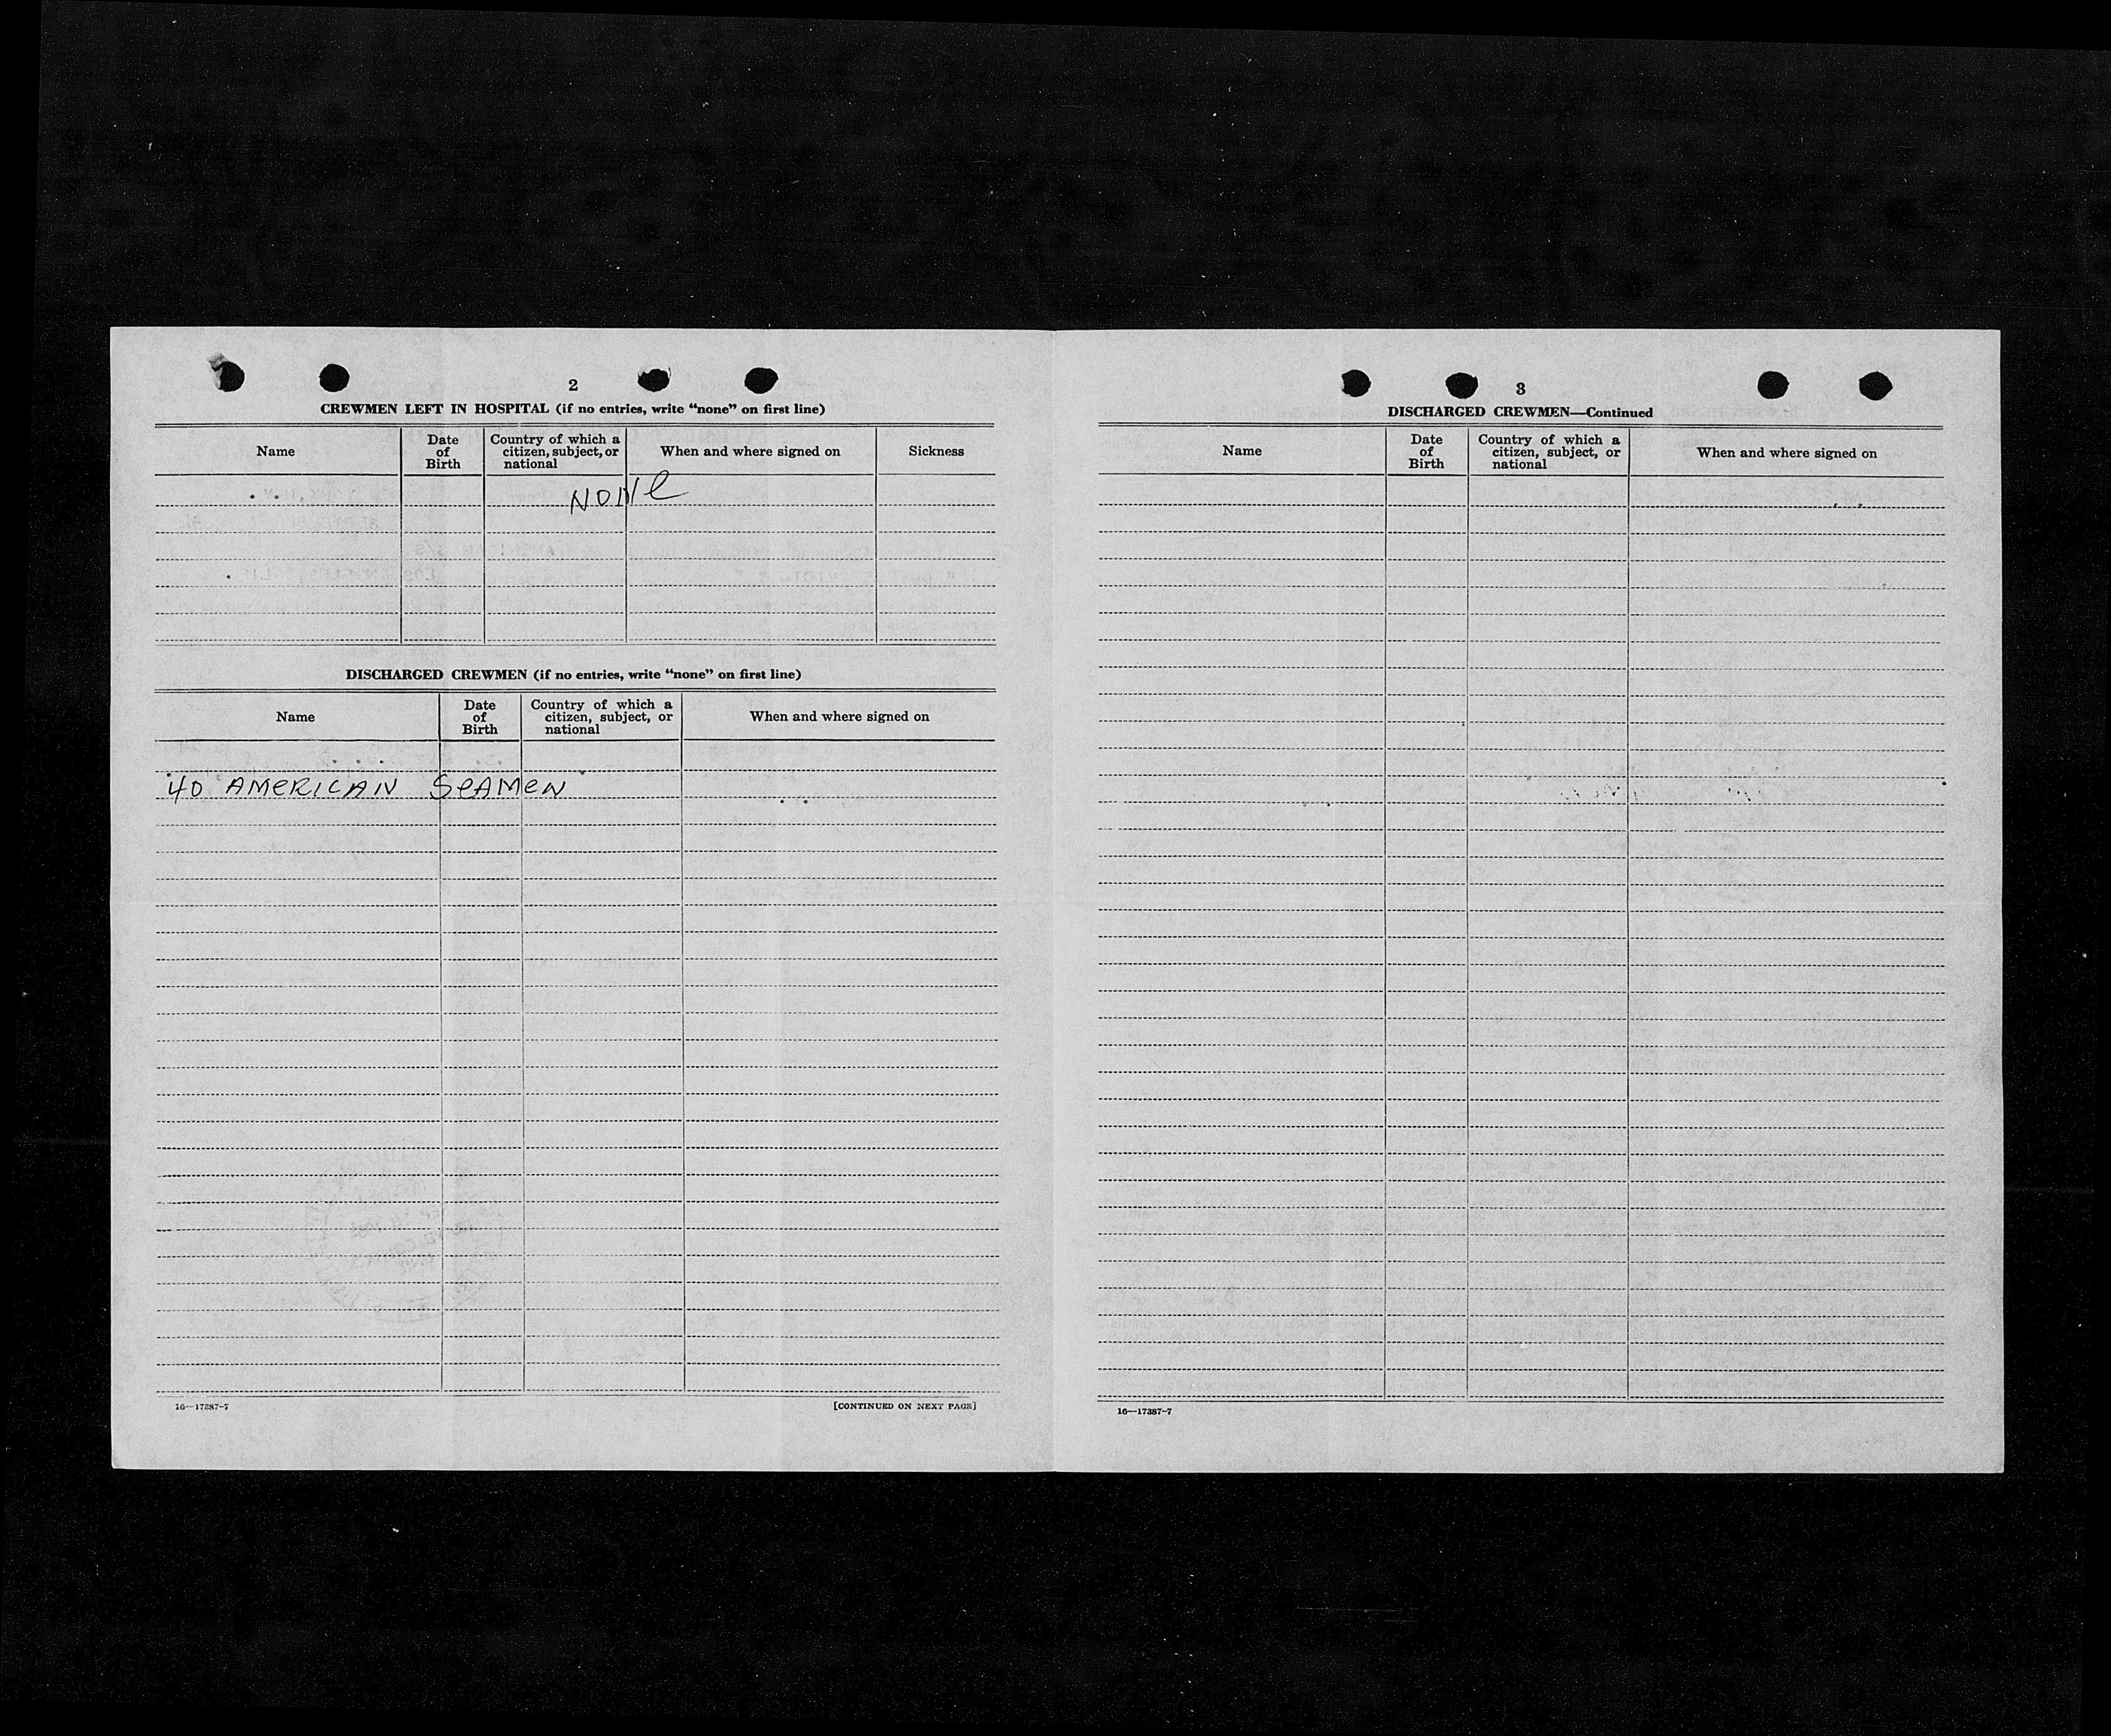 2
CREWMEN LEFT IN HOSPITAL (if no entries, write “none” on first line)
Name
Date of Birth
Country of which a citizen, subject, or national
When and where signed on
Sickness
NONe
DISCHARGED CREWMEN (if no entries, write “none” on first line)
Name
Date of Birth
Country of which a citizen, subject, or national
When and where signed on
40 AMeRICAN SeAMeN
16—17387-7
[CONTINUED ON NEXT PAGE]
3
DISCHARGED CREWMEN—Continued
Name
Date of Birth
Country of which a citizen, subject, or national
When and where signed on
16—17387-7